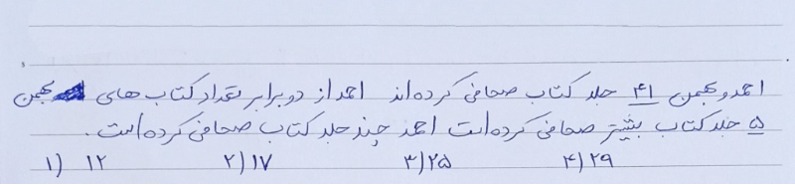 احمد و بهمن ۴۱ جلد کتاب صحافی کرده‌اند احمد از دو برابر تعداد کتاب های بهمن
۵ جلد کتاب بیشتر صحافی کرده است احمد چند جلد کتاب صحافی کرده است.
۱) ۱۲ ۲) ۱۷ ۳) ۲۵ ۴) ۲۹